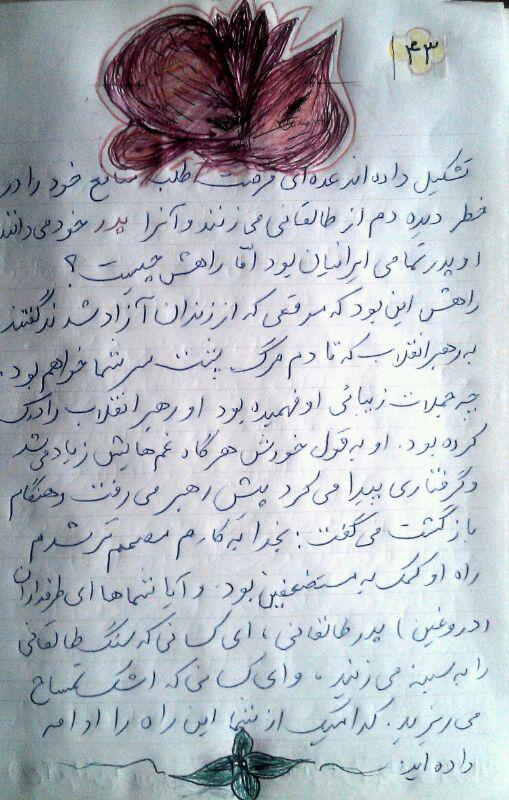 ۴۳
تشکیل داده‌اند عده‌ای فرصت طلب منافع خود را در
خطر دیده دم از طالقانی می زنند و آنرا پدر خود می دانند
او پدر تمامی ایرانیان بود اما راهش چیست؟
راهش این بود که موقعی که از زندان آزاد شدند گفتند
به رهبر انقلاب که تا دم مرگ پشت سر شما خواهم بود.
چه جملات زیبائی او فهمیده بود او رهبر انقلاب را درک
کرده بود. او به قول خودش هرگاه غم‌هایش زیاد می‌شد
و گرفتاری پیدا می کرد پیش رهبر می رفت و هنگام
بازگشت می گفت: بخدا به کارم مصمم تر شدم
راه او کمک به مستضعفین بود. و آیا شماها ای طرفداران
(دروغین) پدر طالقانی، ای کسانی که سنگ طالقانی
را به سینه می زنید، و ای کسانی که اشک تمساح
می ریزید. کدامیک از شما این راه را ادامه
داده اید.